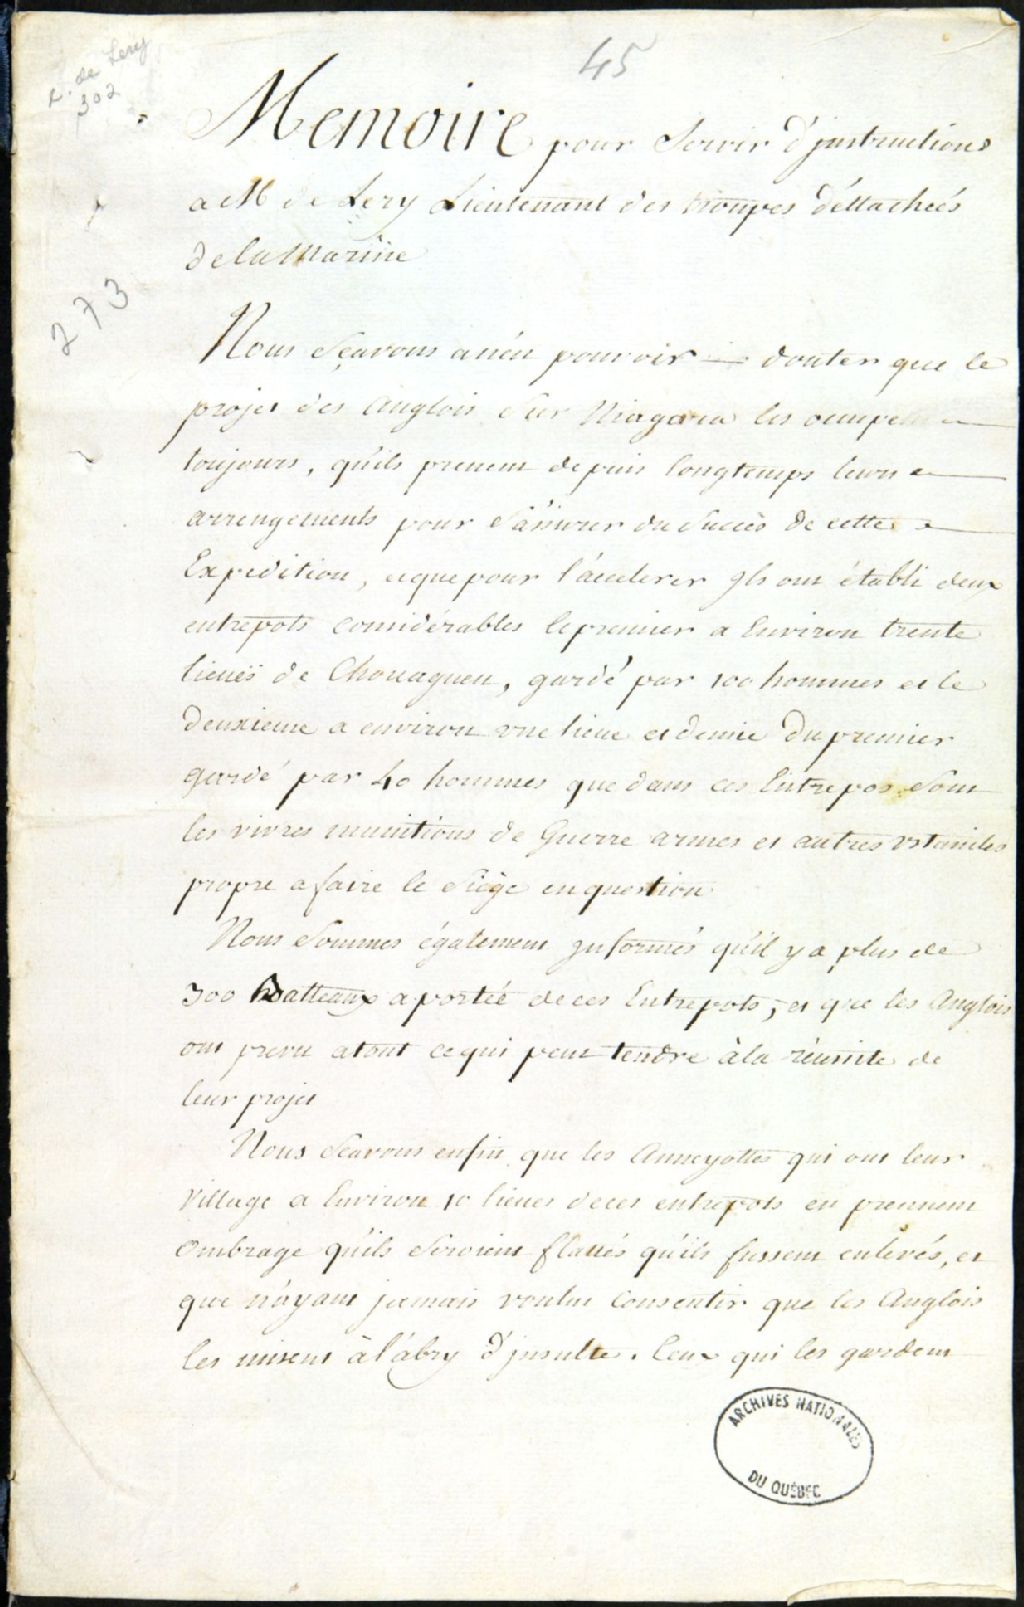 45
R. de Lery
302
Memoire pour Servir d'jnstructions
a M de Lery Lieutenant des troupes détachées
de la Marine
273
Nous Sçavons a n'en pouvoir douter que le
projet des Anglois Sur Niagara les occupe
toujours, qu'ils prenent depuis longtemps leurs
arrengements pour S'assurer du Succès de cette
Expedition, et que pour l'accelerer jls ont établi deux
entrepots considérables le premier a Environ trente
lieuës de Chouaguen, gardé par 100 hommes et le
deuxieme a environ une lieue et demie du premier
gardé par 40 hommes que dans ces Entrepos Sont
les vivres munitions de Guerre armes et autres ustanciles
propre a faire le Siége en question
Nous Sommes également jnformés qu'il y a plus de
300 Batteaux a portée de ces Entrepots, et que les Anglois
ont prevu a tout ce qui peut tendre à la réussite de
leur projet
Nous Scavons enfin que les Anneyottes qui ont leur
Village a Environ 10 lieues de ces entrepots en prennent
Ombrage qu'ils Seroient flattés qu'ils fussent enlevés, et
que n'ayant jamais voulu Consentir que les Anglois
les missent à l'abry d'jnsulte. Ceux qui les gardent
ARCHIVES NATIONALES
DU QUÉBEC